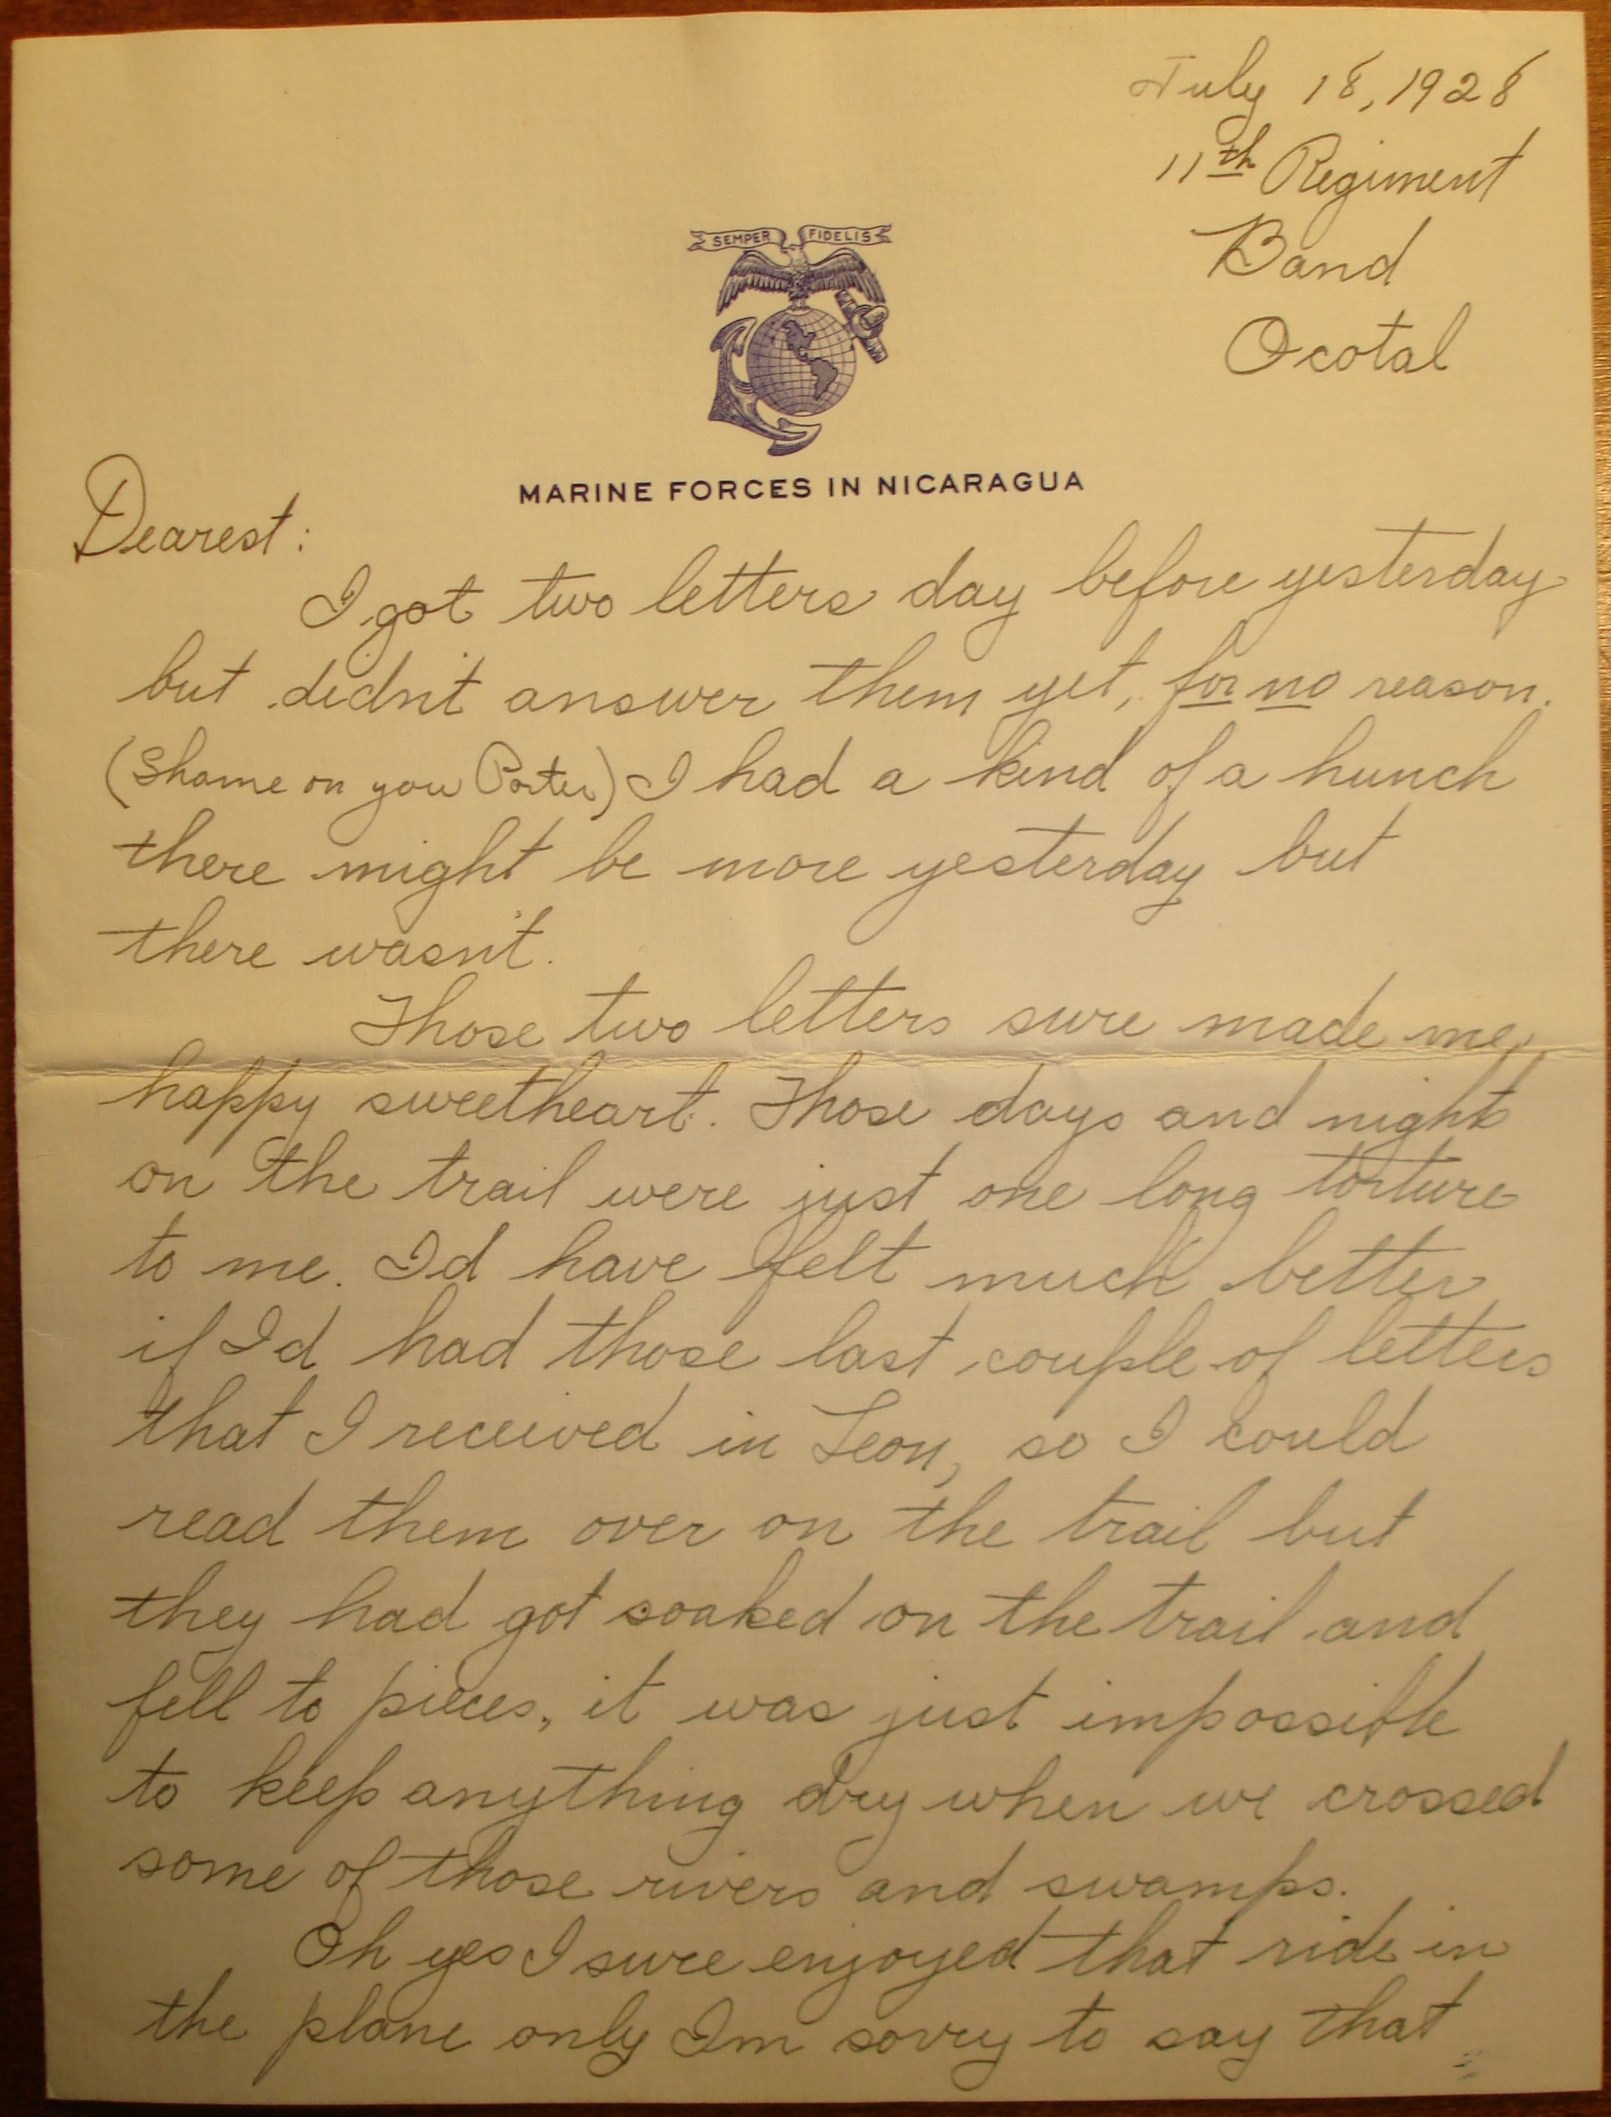 July 18, 1928
11th Regiment
Band
Ocotal
SEMPER FIDELIS
MARINE FORCES IN NICARAGUA
Dearest:
I got two letters day before yesterday
but didn't answer them yet, for no reason.
(Shame on you Porter) I had a kind of a hunch
there might be more yesterday but
there wasn't.
Those two letters sure made me
happy sweetheart. Those days and nights
on the trail were just one long torture
to me. I'd have felt much better
if I'd had those last couple of letters
that I received in Leon, so I could
read them over on the trail but
they had got soaked on the trail and
fell to pieces, it was just impossible
to keep anything dry when we crossed
some of those rivers and swamps.
Oh yes I sure enjoyed that ride in
the plane only Im sorry to say that